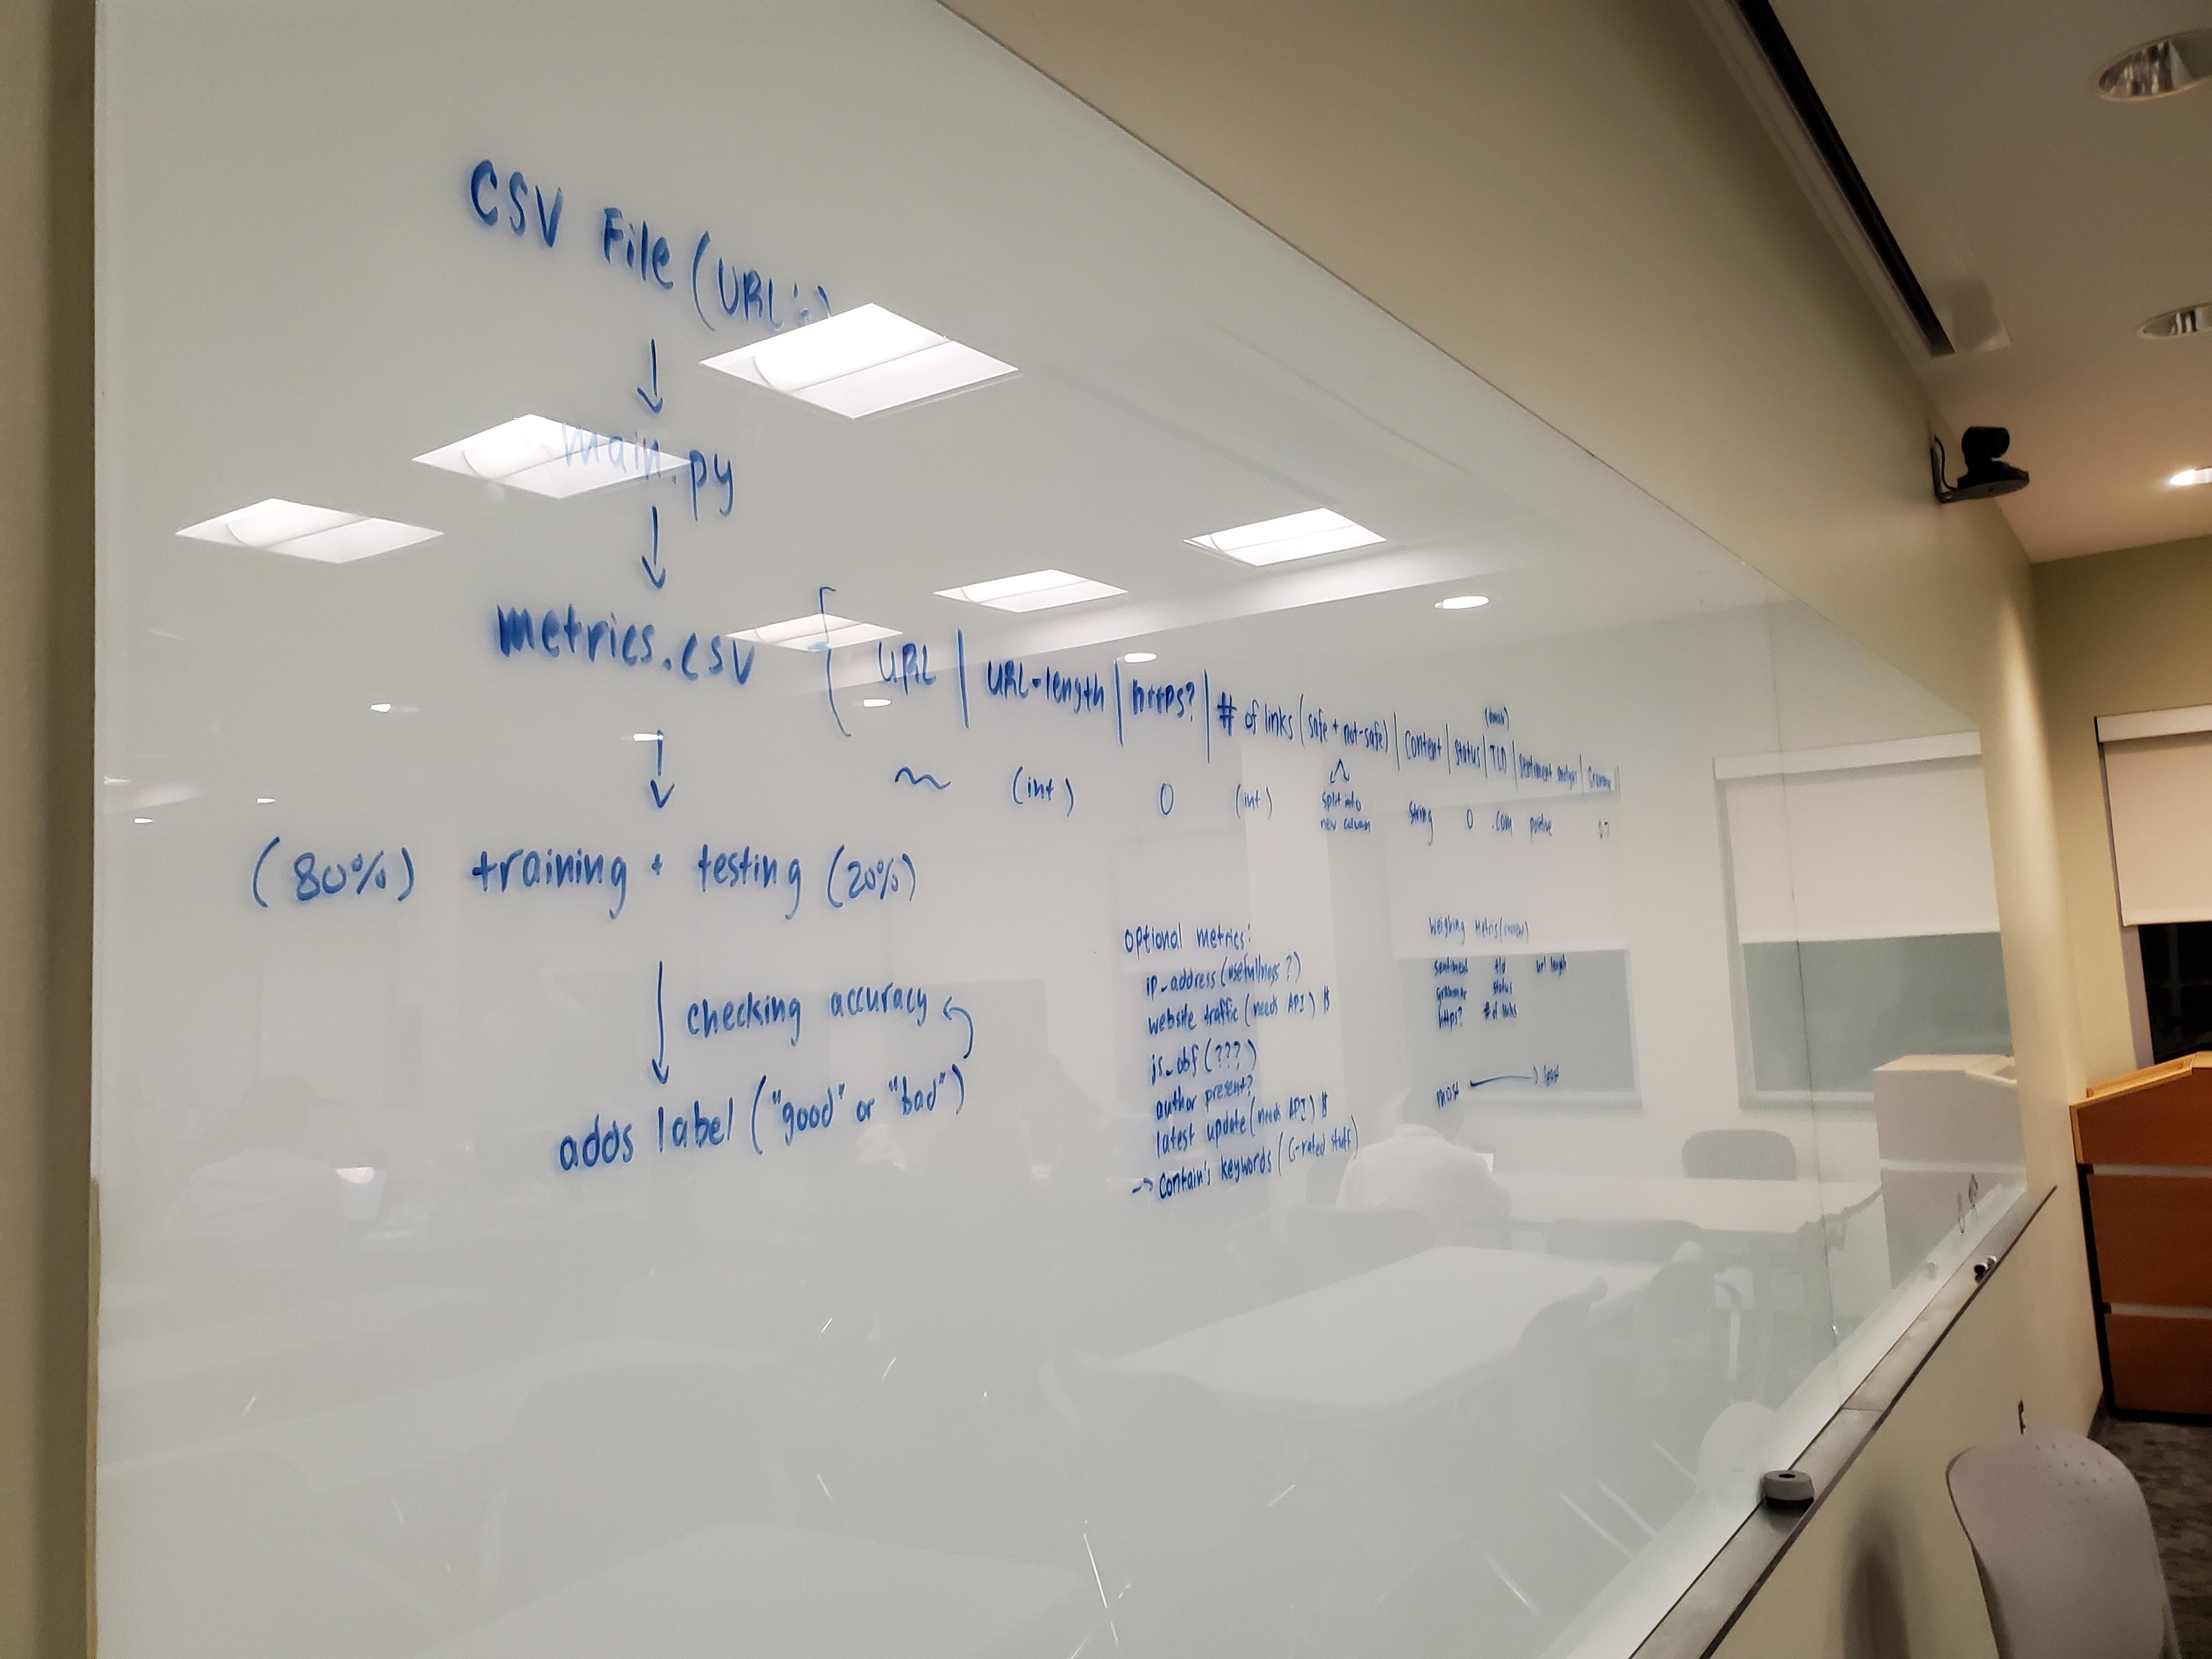 CSV File (URL's)
main.py
metrics.csv { URL | URL-length | https? | # of links (safe + not-safe) | Content | status | TLD | sentiment analysis | Grammar |
~ (int) 0 (int) split into new column String 0 .com positive 0.7
(80%) training + testing (20%)
checking accuracy
adds label ("good" or "bad")
optional metrics:
ip_address (usefullness?)
website traffic (needs API) $
js_obf (???)
author present?
latest update (needs API) $
-> Contain's keywords (C-rated stuff)
Weighing Metrics
sentiment tld url length
grammar status
https? # of links
most -> least